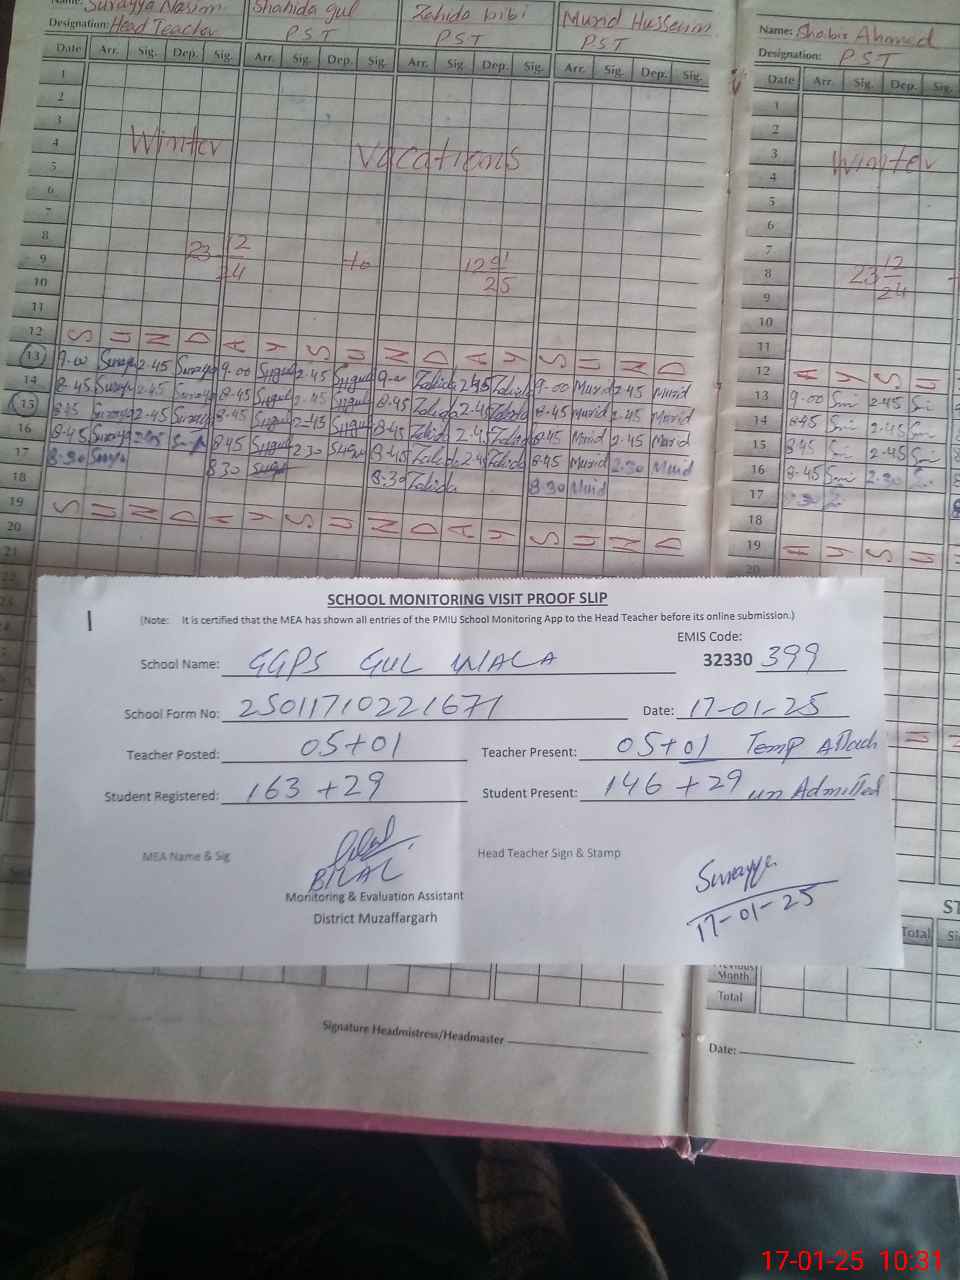 Name: Surayya Nasim Shahida gul Zahida bibi Murid Hussain
Designation: Head Teacher PST PST PST
Date Arr. Sig. Dep. Sig. Arr. Sig. Dep. Sig. Arr. Sig. Dep. Sig. Arr. Sig. Dep. Sig.
1
2
3
4 Winter Vacations
5
6
7
8
9 23 12/24 to 12 01/25
10
11
12 S U N D A Y S U N D A Y S U N D
13 9-00 Suraya 2-45 Suraya 9.00 Sugul 2.45 Sugul 9-00 Zahida 2.45 Zahida 9-00 Murid 2.45 Murid
14 8.45 Suraya 2.45 Suraya 8.45 Sugul 2.45 Sugul 8.45 Zahida 2.45 Zahida 8.45 Murid 2.45 Murid
15 8.45 Suraya 2.45 Suraya 8.45 Sugul 2.45 Sugul 8.45 Zahida 2.45 Zahida 8.45 Murid 2.45 Murid
16 8.45 Suraya 8.45 Sugul 2.30 Sugul 8.45 Zahida 2.45 Zahida 8.45 Murid 2.30 Murid
17 8.30 Suraya 8.30 8.30 Zahida 8.30 Murid
18
19 S U N D A Y S U N D A Y S U N D
20
21
Name: Shabir Ahmed
Designation: PST
Date Arr. Sig. Dep. Sig.
1
2
3 Winter
4
5
6
7
8 23 12/24
9
10
11
12 A Y S U
13 9-00 2.45
14 8.45 2.45
15 8.45 2.45
16 8.45 2.30
17 8.30
18
19 A Y S U
20
SCHOOL MONITORING VISIT PROOF SLIP
(Note: It is certified that the MEA has shown all entries of the PMIU School Monitoring App to the Head Teacher before its online submission.)
EMIS Code:
School Name: GGPS GUL WALA 32330 399
School Form No: 25011710221671 Date: 17-01-25
Teacher Posted: 05+01 Teacher Present: 05+01 Temp Attach
Student Registered: 163 +29 Student Present: 146 + 29 un Admitted
MEA Name & Sig Head Teacher Sign & Stamp
BILAL Surayya
Monitoring & Evaluation Assistant 17-01-25
District Muzaffargarh
Total
Previous Month
Total
Signature Headmistress/Headmaster
Date:
17-01-25 10:31